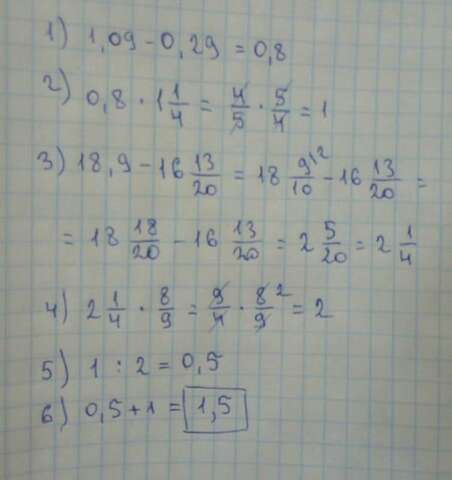 1) 1,09 - 0,29 = 0,8
2) 0,8 · 1 1/4 = 4/5 · 5/4 = 1
3) 18,9 - 16 13/20 = 18 9/10 \2 - 16 13/20 =
= 18 18/20 - 16 13/20 = 2 5/20 = 2 1/4
4) 2 1/4 · 8/9 = 9/4 · 8/9 2 = 2
5) 1 : 2 = 0,5
6) 0,5 + 1 = 1,5